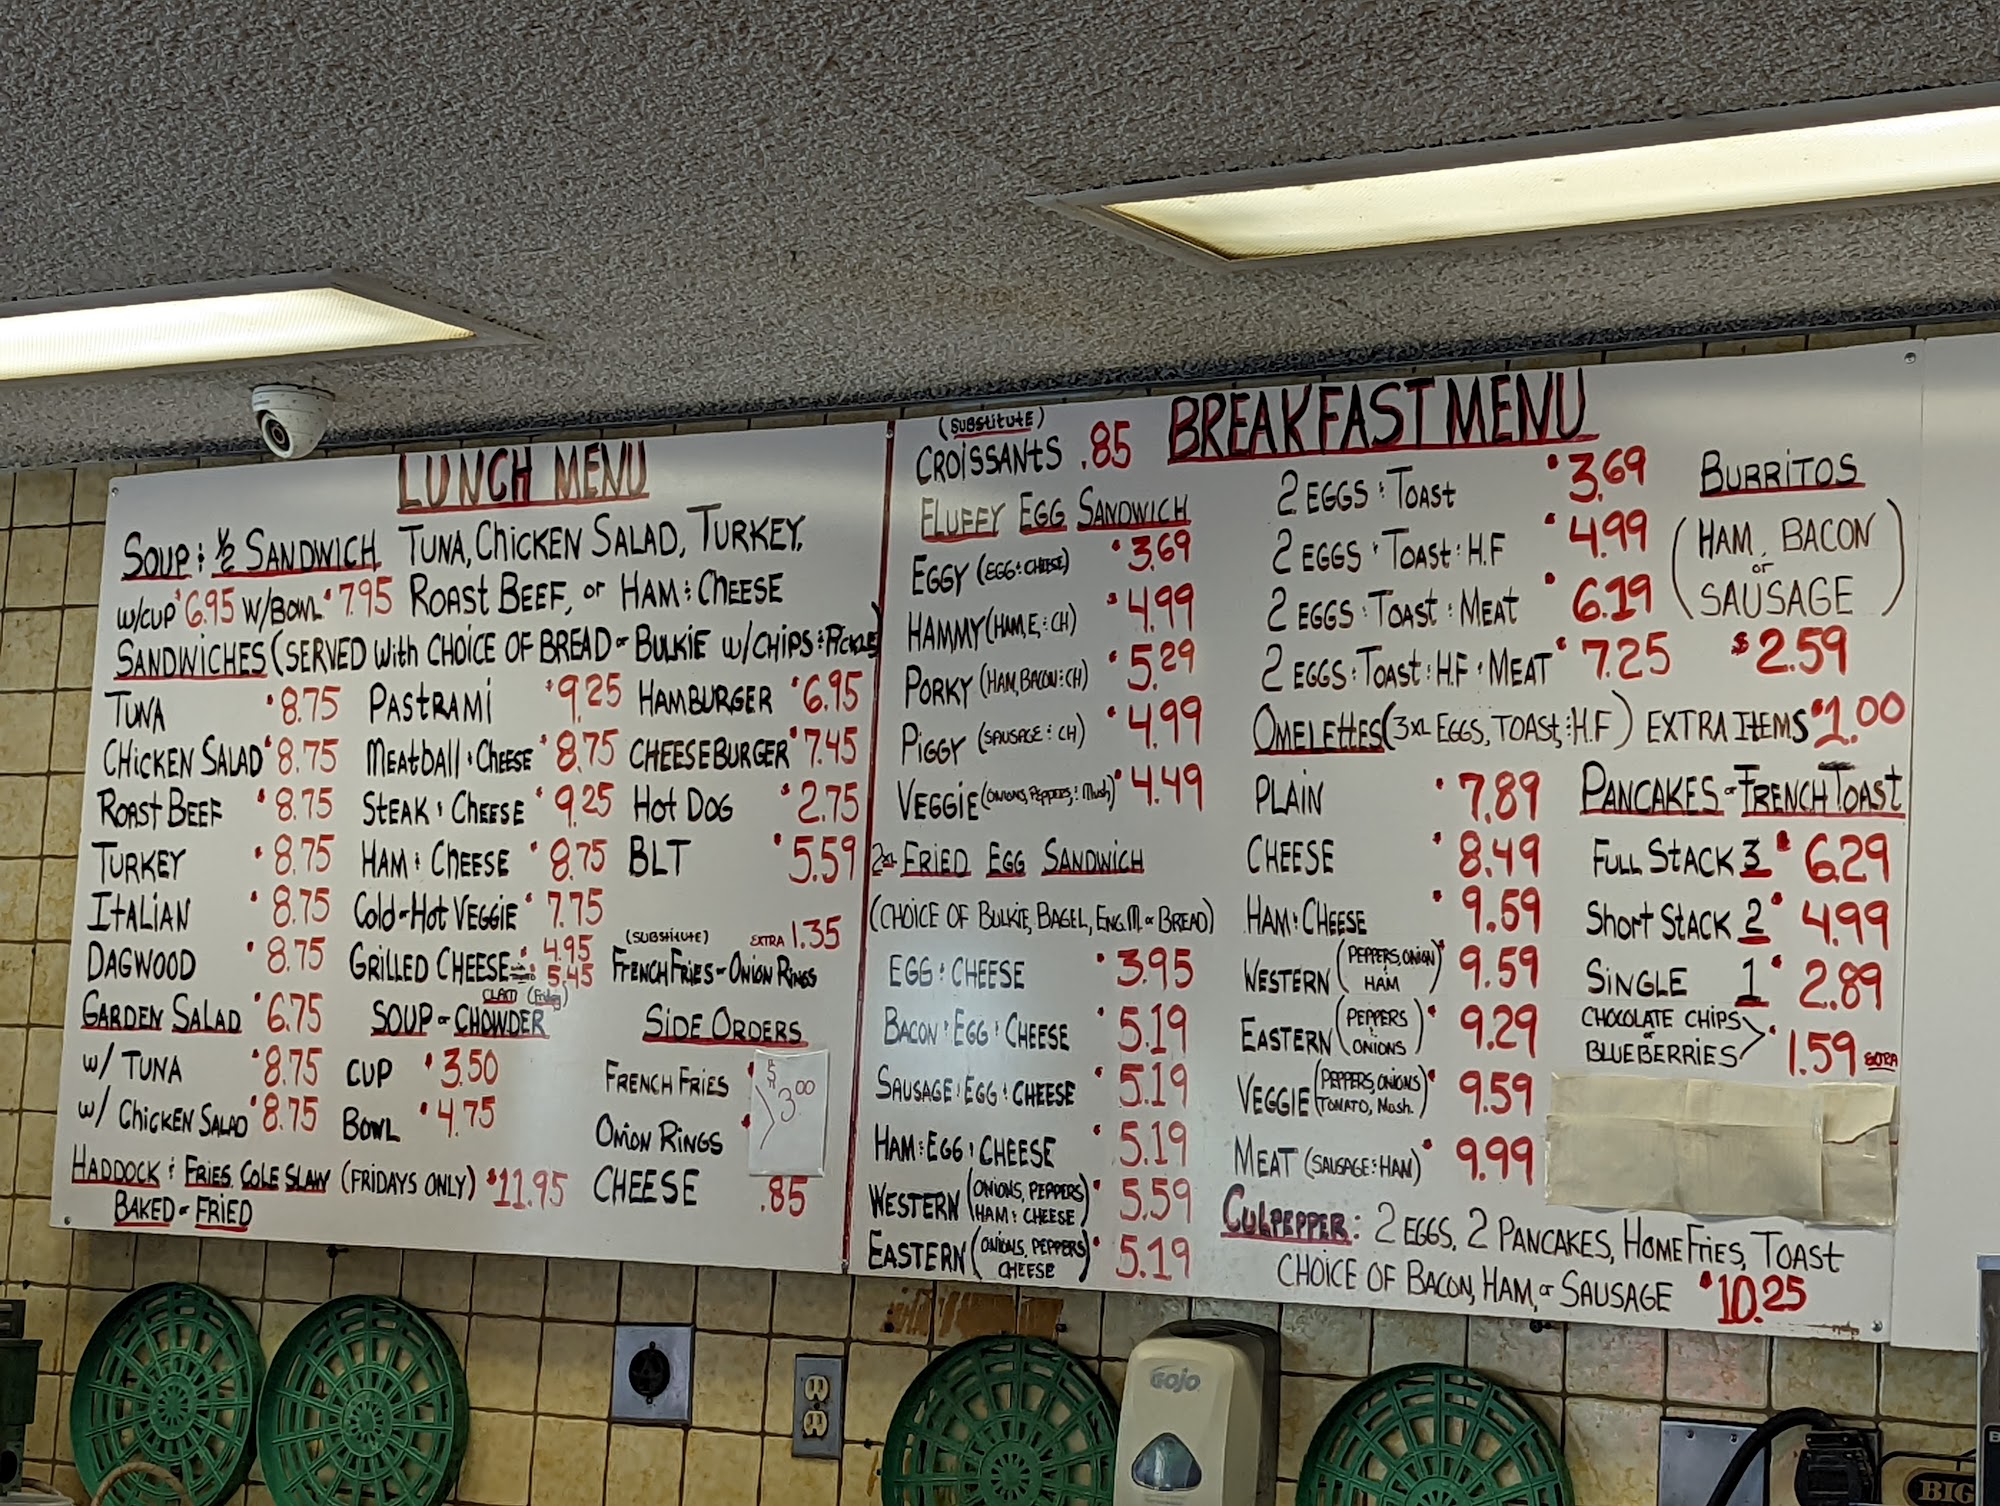 LUNCH MENU
SOUP & ½ SANDWICH TUNA, CHICKEN SALAD, TURKEY,
W/CUP $6.95 W/BOWL $7.95 ROAST BEEF, or HAM & CHEESE
SANDWICHES (SERVED with CHOICE OF BREAD or BULKIE W/CHIPS & PICKLE)
TUNA $8.75
CHICKEN SALAD $8.75
ROAST BEEF $8.75
TURKEY $8.75
ITALIAN $8.75
DAGWOOD $8.75
GARDEN SALAD $6.75
W/ TUNA $8.75
W/ CHICKEN SALAD $8.75
PASTRAMI $9.25
MEATBALL & CHEESE $8.75
STEAK & CHEESE $9.25
HAM & CHEESE $8.75
COLD or HOT VEGGIE $7.75
GRILLED CHEESE $4.95
$5.45
CLAM (Friday)
SOUP or CHOWDER
CUP $3.50
BOWL $4.75
HAMBURGER $6.95
CHEESEBURGER $7.45
HOT DOG $2.75
BLT $5.59
(SUBSTITUTE) EXTRA 1.35
FRENCH FRIES or ONION RINGS
SIDE ORDERS
FRENCH FRIES $
$3.00
ONION RINGS $
CHEESE .85
HADDOCK & FRIES, COLE SLAW (FRIDAYS ONLY) $11.95
BAKED or FRIED
(SUBSTITUTE)
CROISSANTS .85
BREAKFAST MENU
FLUFFY EGG SANDWICH
EGGY (EGG & CHEESE) $3.69
HAMMY (HAM, E, & CH) $4.99
PORKY (HAM, BACON & CH) $5.29
PIGGY (SAUSAGE & CH) $4.99
VEGGIE (ONIONS, PEPPERS, & Mush) $4.49
2XL FRIED EGG SANDWICH
(CHOICE OF BULKIE, BAGEL, ENG. M. or BREAD)
EGG & CHEESE $3.95
BACON & EGG & CHEESE $5.19
SAUSAGE & EGG & CHEESE $5.19
HAM & EGG & CHEESE $5.19
WESTERN (ONIONS, PEPPERS HAM & CHEESE) $5.59
EASTERN (ONIONS, PEPPERS CHEESE) $5.19
2 EGGS & TOAST $3.69
2 EGGS & TOAST & H.F $4.99
2 EGGS & TOAST & MEAT $6.19
2 EGGS & TOAST & H.F & MEAT $7.25
BURRITOS
(HAM, BACON
or
SAUSAGE)
$2.59
OMELETTES (3XL EGGS, TOAST, & H.F) EXTRA ITEMS $1.00
PLAIN $7.89
CHEESE $8.49
HAM & CHEESE $9.59
WESTERN (PEPPERS, ONION & HAM) $9.59
EASTERN (PEPPERS & ONIONS) $9.29
VEGGIE (PEPPERS, ONIONS TOMATO, Mush.) $9.59
MEAT (SAUSAGE & HAM) $9.99
PANCAKES or FRENCH TOAST
FULL STACK 3 $6.29
SHORT STACK 2 $4.99
SINGLE 1 $2.89
CHOCOLATE CHIPS
or
BLUEBERRIES $1.59 EXTRA
CULPEPPER: 2 EGGS, 2 PANCAKES, HOME FRIES, TOAST
CHOICE OF BACON, HAM, or SAUSAGE $10.25
GOJO
BIG